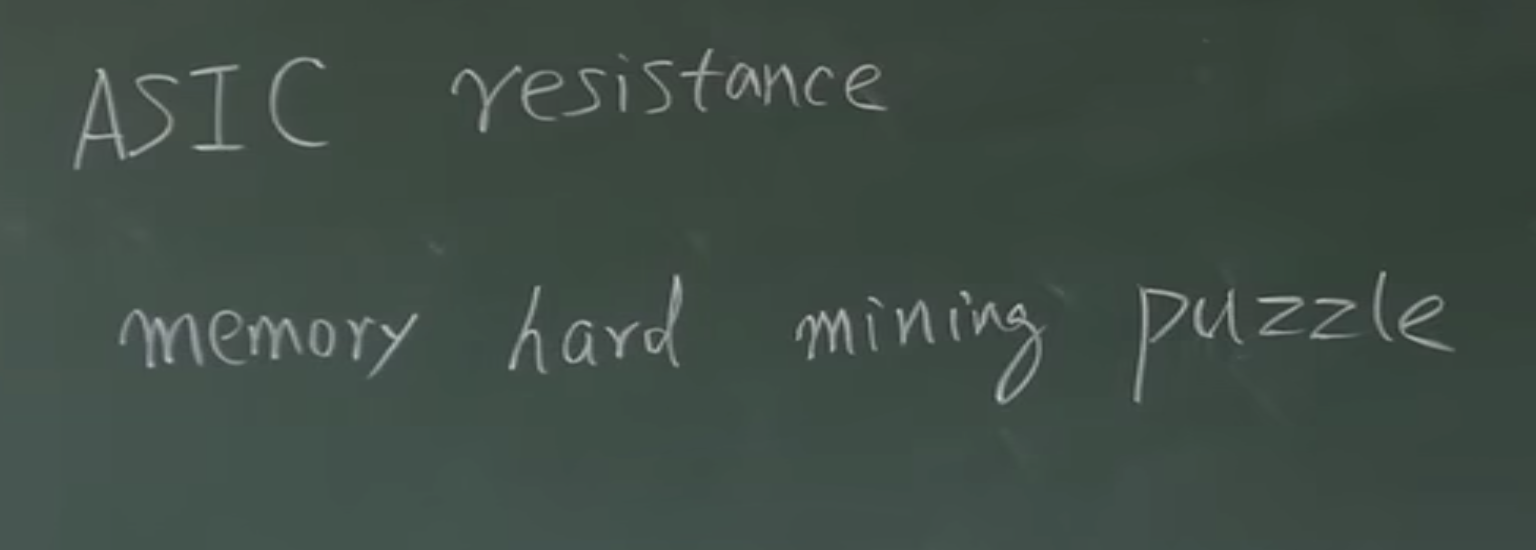 ASIC resistance
memory hard mining puzzle